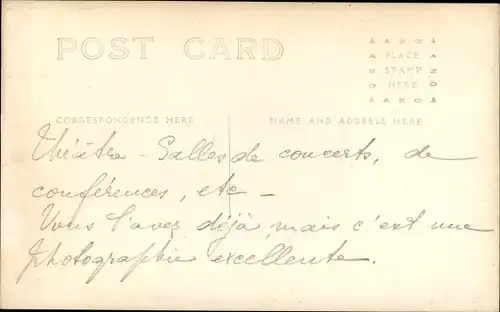 POST CARD
AZO
PLACE
STAMP
HERE
AZO
CORRESPONDENCE HERE
NAME AND ADDRESS HERE
Théâtre - Salles de concerts, de
conférences, etc -
Vous l'avez déjà, mais c'est une
photographie excellente.